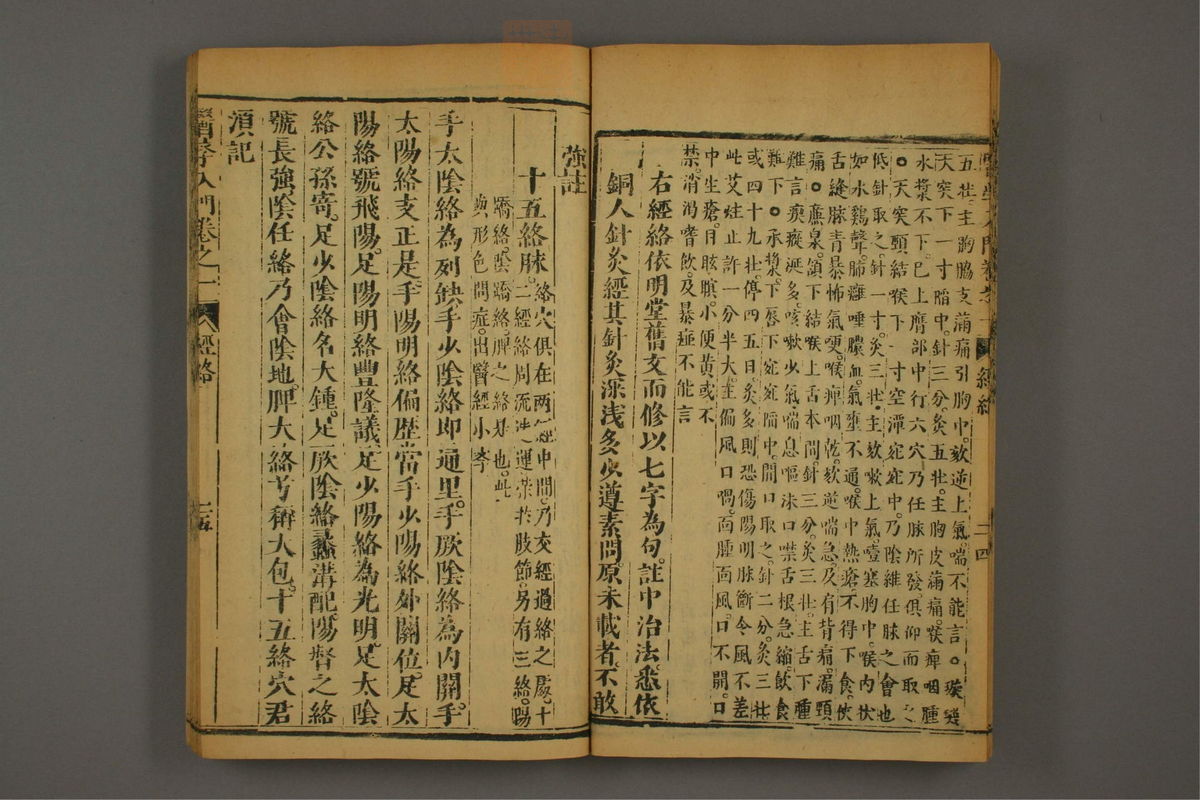 五壯。主胸脇支滿痛引胸中。欬逆上氣。喘不能言。○璇璣
天突下一寸陷中。針三分。灸五壯。主胸皮滿痛。喉痺咽腫
水漿不下。已上膺部中行六穴乃任脉所發。俱仰而取之
○天突頸結喉下一寸空潭宛宛中。乃陰維任脉之會也
低針取之。針一寸。灸三壯。主欬嗽上氣。噎塞胸中。喉內狀
如水鷄聲。肺癰唾膿血。氣壅不通。喉中熱瘡不得下食。俠
舌縫脉青暴怖氣哽。喉痺咽乾。欬逆喘急。及有背痛。漏頸
痛。○廉泉。頷下結喉上舌本間。針三分。灸三壯。主舌下腫
難言瘈瘲涎多。咳嗽少氣喘息嘔沫口噤舌根急縮。飲食
難下。○承漿。下唇下宛宛陷中。開口取之。針二分。灸三壯
或四十九壯。停四五日。灸多則恐傷陽明脉斷令風不差
此艾炷止許一分半大。主偏風口喎。面腫面風。口不開。口
中生瘡。目眩瞑。小便黄或不
禁。消渴嗜飲。及暴瘂不能言
右經絡依明堂舊文而修以七字為句。註中治法悉依
銅人針灸經其針灸深浅多少遵素問。原未載者。不敢
二十四
強註
十五絡脉。絡穴俱在两經中間。乃交經過絡之處。十
二經絡周流
運
於肢節。另有三絡。陽
蹻絡。陰蹻絡。脾之絡是也。此
與形色問症。出醫經小學
手太陰絡為列缺手少陰絡即通里。手厥陰絡為内關。手
太陽絡支正是。手陽明絡偏歷當手少陽絡外關位。足太
陽絡號飛陽。足陽明絡豐隆議足少陽絡為光明。足太陰
絡公孫寄。足少陰絡名大鍾。足厥陰絡蠡溝配。陽督之絡
號長強陰任絡乃會陰地。脾大絡兮稱大包。十五絡穴君
須記
醫學入門卷之一
經絡
二十五